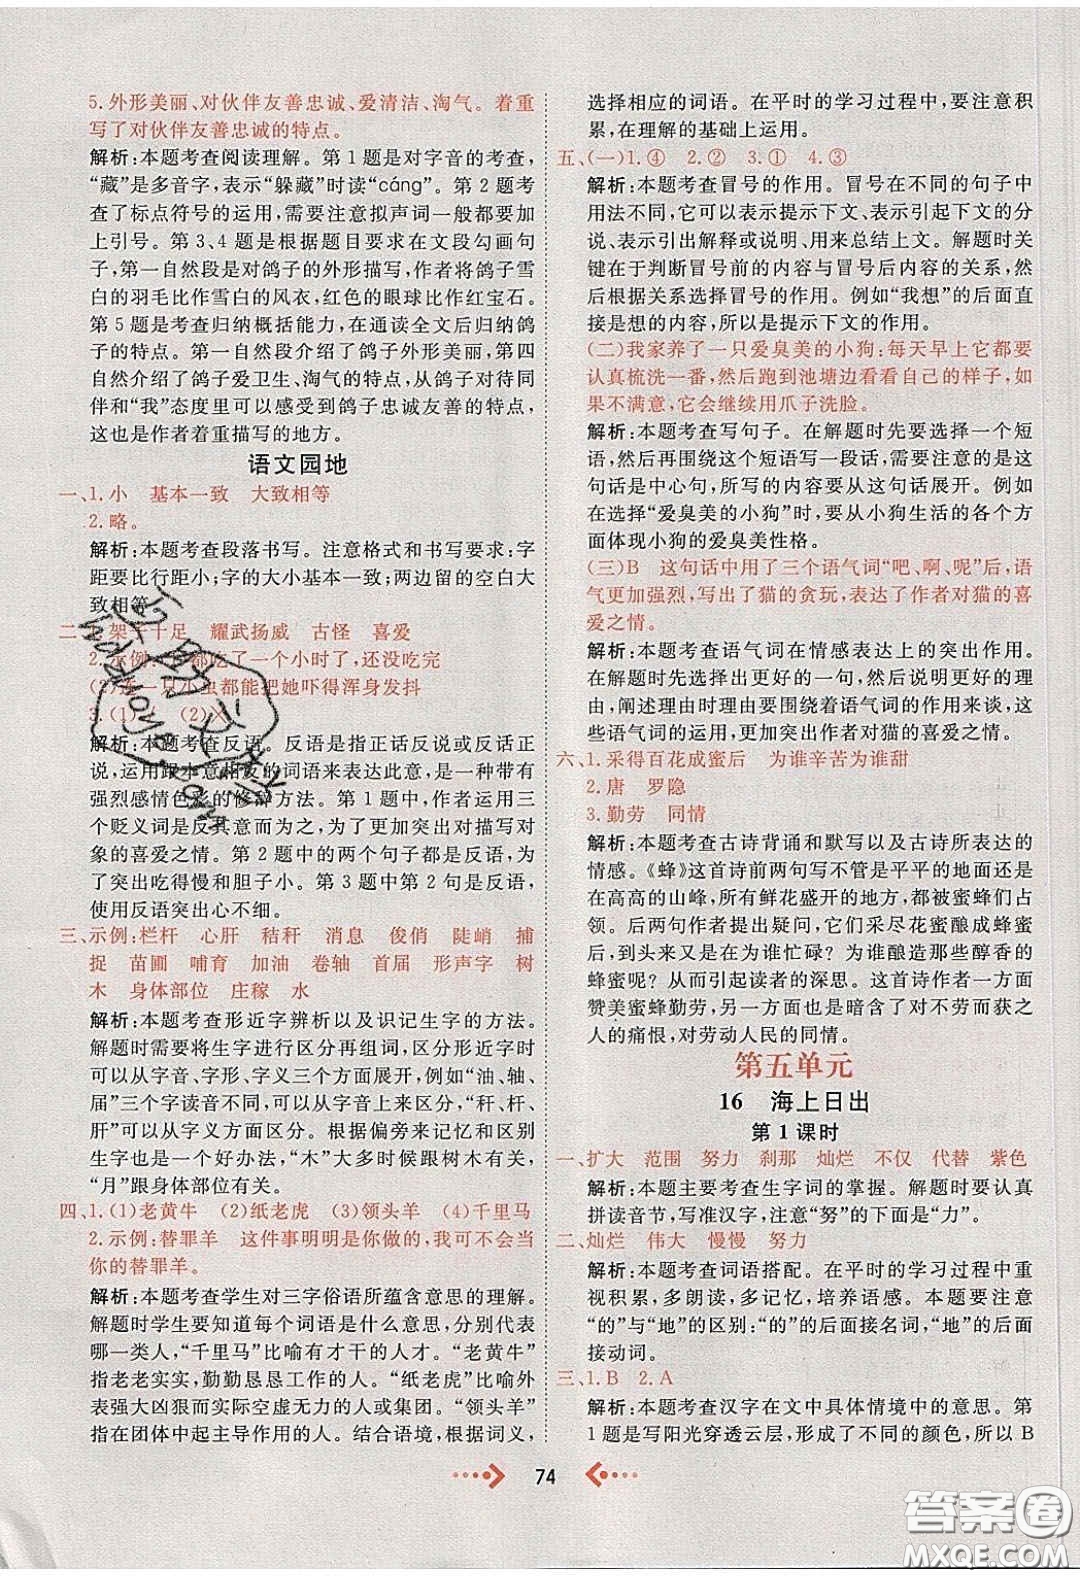 5.外形美丽、对伙伴友善忠诚、爱清洁、淘气。着重
写了对伙伴友善忠诚的特点。
解析:本题考查阅读理解。第1题是对字音的考查,
“藏”是多音字,表示“躲藏”时读“cáng”。第2题考
查了标点符号的运用,需要注意拟声词一般都要加
上引号。第3、4题是根据题目要求在文段勾画句
子,第一自然段是对鸽子的外形描写,作者将鸽子雪
白的羽毛比作雪白的风衣,红色的眼球比作红宝石。
第5题是考查归纳概括能力,在通读全文后归纳鸽
子的特点。第一自然段描写了鸽子外形美丽,第四
自然段介绍了鸽子爱卫生、淘气的特点,从鸽子对同
伴和“我”态度里可以感受到鸽子忠诚友善的特点,
这也是作者着重描写的地方。
语文园地
一、1.小 基本一致 大致相等
2.略。
解析:本题考查段落书写。注意格式和书写要求:字
距要比行距小;字的大小基本一致;两边留的空白大
致相等。
二、1.架子十足 耀武扬威 古怪 喜爱
2.示例:都吃了一个小时了,还没吃完
(2)连一只小虫都能把她吓得浑身发抖
3.(1) (2)×
解析:本题考查反语。反语是指正话反说或反话正
说,运用跟本意相反的词语来表达此意,是一种带有
强烈感情色彩的修辞方法。第1题中,作者运用三
个贬义词是反其意而为之,突出了作者对描写的对
象的喜爱之情。第2题中的两个句子都是反语,为
了突出吃得慢和胆子小。第3题中第2句是反语,
使用反语突出心不细。
三、示例:栏杆 心肝 秸秆 消息 俊俏 陡峭 捕
捉 苗圃 哺育 加油 卷轴 首届 形声字 树
木 身体部位 庄稼 水
解析:本题考查形近字辨析以及识记生字的方法。
解题时需要将生字进行区分再组词,考查形近字时
可以从字音、字形、字义三个方面展开,例如“油、轴、
届”三个字读音不同,可以以此来区分,“秆、杆、
肝”可以从字义方面区分。根据偏旁来记忆和区别
生字也是一个好办法,“木”大多时候跟树木有关,
“月”跟身体部位有关。
四、1.(1)老黄牛 (2)纸老虎 (3)领头羊 (4)千里马
2.示例:替罪羊 这件事明明是你做的,我可不会当
你的替罪羊。
解析:本题考查学生对三字俗语所蕴含意思的理解。
解题时学生要知道每个词语是什么意思,分别代表
哪一类人,“千里马”比喻有才干的人才。“老黄牛”
指老老实实,勤勤恳恳工作的人。“纸老虎”比喻外
表强大凶狠而实际空虚无力的人或集团。“领头羊”
指在团体中起主导作用的人。结合语境,根据词义,
选择相应的词语。在平时的学习过程中,要注意积
累,在理解的基础上运用。
五、(一)1.④ 2.② 3.① 4.③
解析:本题考查冒号的作用。冒号在不同的句子中
用法不同,它可以表示提示下文、表示引起下文的分
说、表示引出解释或说明、用来总结上文。解题时关
键在于判断冒号前的内容与冒号后内容的关系,然
后根据关系选择冒号的作用。例如“我想”的后面直
接是想的内容,所以是提示下文的作用。
(二)我家养了一只爱臭美的小狗:每天早上它都要
认真梳洗一番,然后跑到池塘边看看自己的样子,如
果不满意,它会继续用爪子洗脸。
解析:本题考查写句子。在解题时先要选择一个短
语,再围绕这个短语写一段话,需要注意的是这
句话是中心句,所写的都要围绕这个句话展开。例如
在选择“爱臭美的小狗”时,要从小狗生活的各个方
面体现小狗的爱臭美性格。
(三)B 这句话中用了三个语气词“吧、啊、呢”后,语
气更加强烈,写出了猫的贪玩,表达了作者对猫的喜
爱之情。
解析:本题考查语气词在情感表达上的突出作用。
在解题时先要选择更好的一句,然后阐明选择的理
由,阐述理由时理由要围绕着语气词的作用来谈,例
如,这些语气词的作用是突出了作者对猫的喜爱之情。
六、1.采得百花成蜜后 为谁辛苦为谁甜
2.唐 罗隐
3.勤劳 同情
解析:本题考查古诗背诵和默写以及古诗所表达的
情感。《蜂》这首诗前两句写不管是平平的地面还是
在高高的山峰,所有鲜花盛开的地方,都被蜜蜂们占
领。后两句作者发出提问,它们采尽花蜜酿成蜂蜜
后,到头来又是在为谁忙碌?为谁酿造那些醇香的
蜂蜜呢?从而引起读者的深思。这首诗作者一方面
赞美蜜蜂勤劳,另一方面也是暗含了对不劳而获之
人的痛恨,对劳动人民的同情。
第五单元
16 海上日出
第1课时
一、扩大 范围 努力 刹那 灿烂 不仅 代替 紫色
解析:本题主要考查生字词的掌握。解题时要认真
拼读音节,写准汉字,注意“努”的下面是“力”。
二、灿烂 伟大 慢慢 努力
解析:本题考查词语搭配。在平时的学习过程中重
视积累,多朗读,多记忆,培养语感。本题要注意
“的”与“地”的区别:“的”的后面接名词,“地”的后面
接动词。
三、1.B 2.A
解析:本题考查汉字在文中具体情境中的意思。第
1题是写阳光穿透云层,形成了不同的颜色,所以B
74
答案圈
MXQE.COM